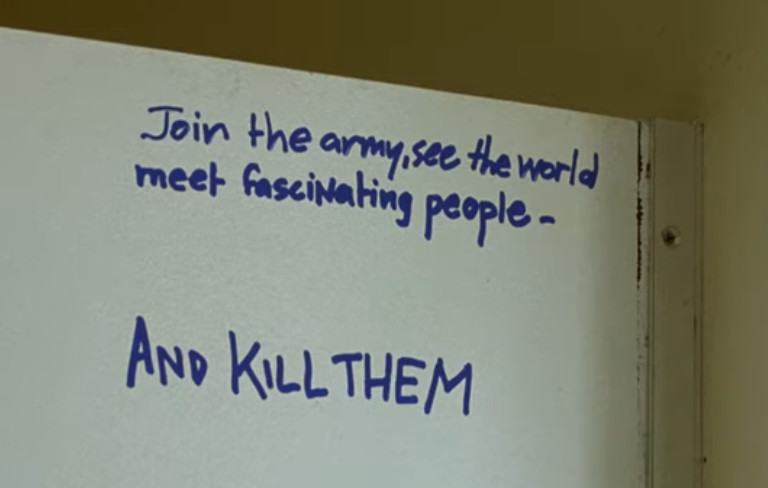 Join the army, see the world
meet fascinating people -
AND KILL THEM